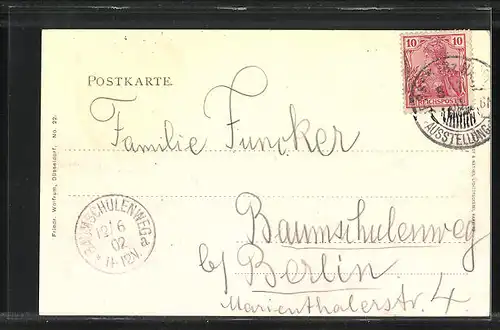 POSTKARTE.
10 10
REICHSPOST
AUSSTELLUNG
Familie Funcker
Friedr. Wolfrum, Düsseldorf. No. 22.
BAUMSCHULENWEG
12/6
02
11-12V.
a
Baumschulenweg
b/ Berlin
Marienthalerstr. 4.